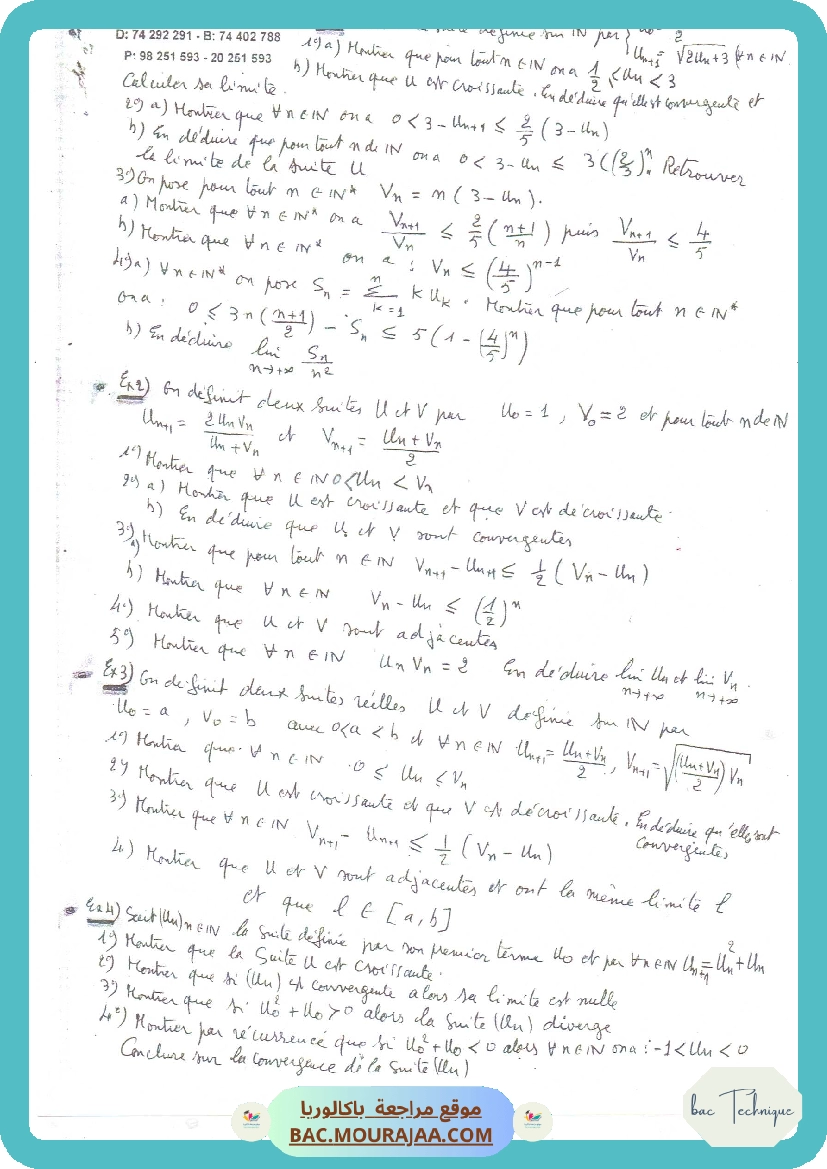 D: 74 292 291 - B: 74 402 788
P: 98 251 593 - 20 251 593
suite définie sur IN par { U₀ = 1/2
Uₙ₊₁ = √(2Uₙ+3) (∀ n ∈ IN
1°) a) Montrer que pour tout n ∈ IN on a 1/2 ≤ Uₙ < 3
b) Montrer que U est croissante. En déduire qu'elle est convergente et
Calculer sa limite.
2°) a) Montrer que ∀ n ∈ IN on a 0 < 3 - Uₙ₊₁ ≤ 2/5 (3 - Uₙ)
b) En déduire que pour tout n de IN on a 0 < 3 - Uₙ ≤ 3 (2/5)ⁿ. Retrouver
la limite de la suite U
3°) On pose pour tout n ∈ IN* Vₙ = n (3 - Uₙ).
a) Montrer que ∀ n ∈ IN* on a Vₙ₊₁/Vₙ ≤ 2/5 (n+1/n) puis Vₙ₊₁/Vₙ ≤ 4/5
b) Montrer que ∀ n ∈ IN* on a : Vₙ ≤ (4/5)ⁿ⁻¹
4°) a) ∀ n ∈ IN* on pose Sₙ = Σ (k=1 → n) k Uₖ. Montrer que pour tout n ∈ IN*
on a : 0 ≤ 3n (n+1/2) - Sₙ ≤ 5 (1 - (4/5)ⁿ)
b) En déduire lim n→+∞ Sₙ/n²
Ex2) On définit deux suites U et V par U₀ = 1, V₀ = 2 et pour tout n de IN
Uₙ₊₁ = 2UₙVₙ/(Uₙ + Vₙ) et Vₙ₊₁ = (Uₙ + Vₙ)/2
1°) Montrer que ∀ n ∈ IN 0 < Uₙ < Vₙ
2°) a) Montrer que U est croissante et que V est décroissante.
b) En déduire que U et V sont convergentes
3°) a) Montrer que pour tout n ∈ IN Vₙ₊₁ - Uₙ₊₁ ≤ 1/2 (Vₙ - Uₙ)
b) Montrer que ∀ n ∈ IN Vₙ - Uₙ ≤ (1/2)ⁿ
4°) Montrer que U et V sont adjacentes
5°) Montrer que ∀ n ∈ IN Uₙ Vₙ = 2 En déduire lim n→+∞ Uₙ et lim n→+∞ Vₙ.
Ex3) On définit deux suites réelles U et V définie sur IN par
U₀ = a, V₀ = b avec 0 < a < b et ∀ n ∈ IN Uₙ₊₁ = (Uₙ+Vₙ)/2, Vₙ₊₁ = √((Uₙ+Vₙ)/2) Vₙ
1°) Montrer que ∀ n ∈ IN 0 ≤ Uₙ ≤ Vₙ
2°) Montrer que U est croissante et que V est décroissante. En déduire qu'elles sont
convergentes
3°) Montrer que ∀ n ∈ IN Vₙ₊₁ - Uₙ₊₁ ≤ 1/2 (Vₙ - Uₙ)
4°) Montrer que U et V sont adjacentes et ont la même limite l
et que l ∈ [a, b]
Ex4) Soit (Uₙ) n ∈ IN la suite définie par son premier terme U₀ et par ∀ n ∈ IN Uₙ₊₁ = Uₙ² + Uₙ
1°) Montrer que la Suite U est Croissante.
2°) Montrer que si (Uₙ) est convergente alors sa limite est nulle
3°) Montrer que si U₀² + U₀ > 0 alors la suite (Uₙ) diverge
4°) Montrer par récurrence que si U₀² + U₀ < 0 alors ∀ n ∈ IN on a : -1 < Uₙ < 0
Conclure sur la convergence de la suite (Uₙ)
موقع مراجعة باكالوريا
BAC.MOURAJAA.COM
bac Technique